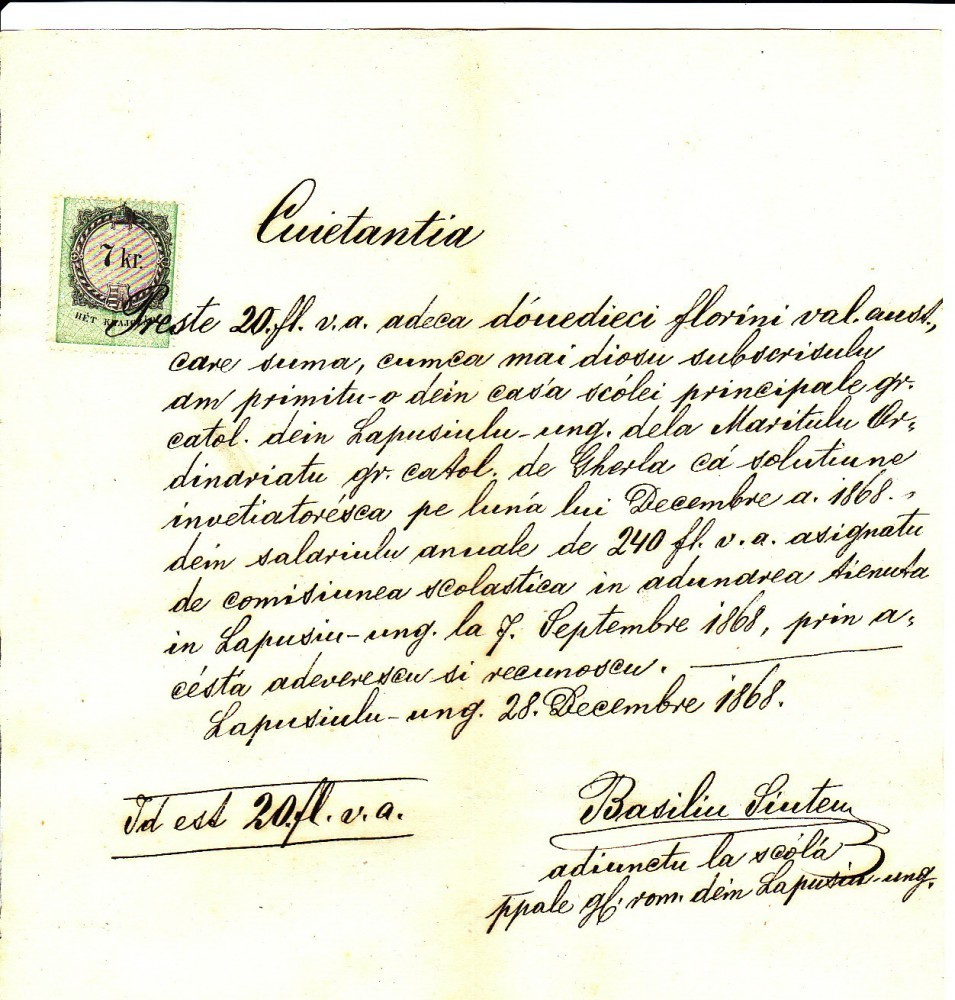 Cuietantia
7 kr.
HÉT KRAJCZÁR
Preste 20.fl. v.a. adeca dóuedieci florini val. aust.,
care suma, cumca mai diosu subscrisulu
am primitu-o dein cas'a scólei principale gr.
catol. dein Lapusiulu-ung. dela Maritulu Or-
dinariatu gr. catol. de Gherla cá solutiune
invetiatorésca pe luná lui Decembre a. 1868.,
dein salariulu anuale de 240 fl. v. a. asignatu
de comisiunea scolastica in adunarea tienuta
in Lapusiu-ung. la 7. Septembre 1868, prin a-
cést'a adeverescu si recunoscu.
Lapusiulu-ung. 28. Decembre 1868.
Id est 20.fl. v. a.
Basiliu Siuteu
adiunctu la scólá
ppale rom. dein Lapusiu-ung.